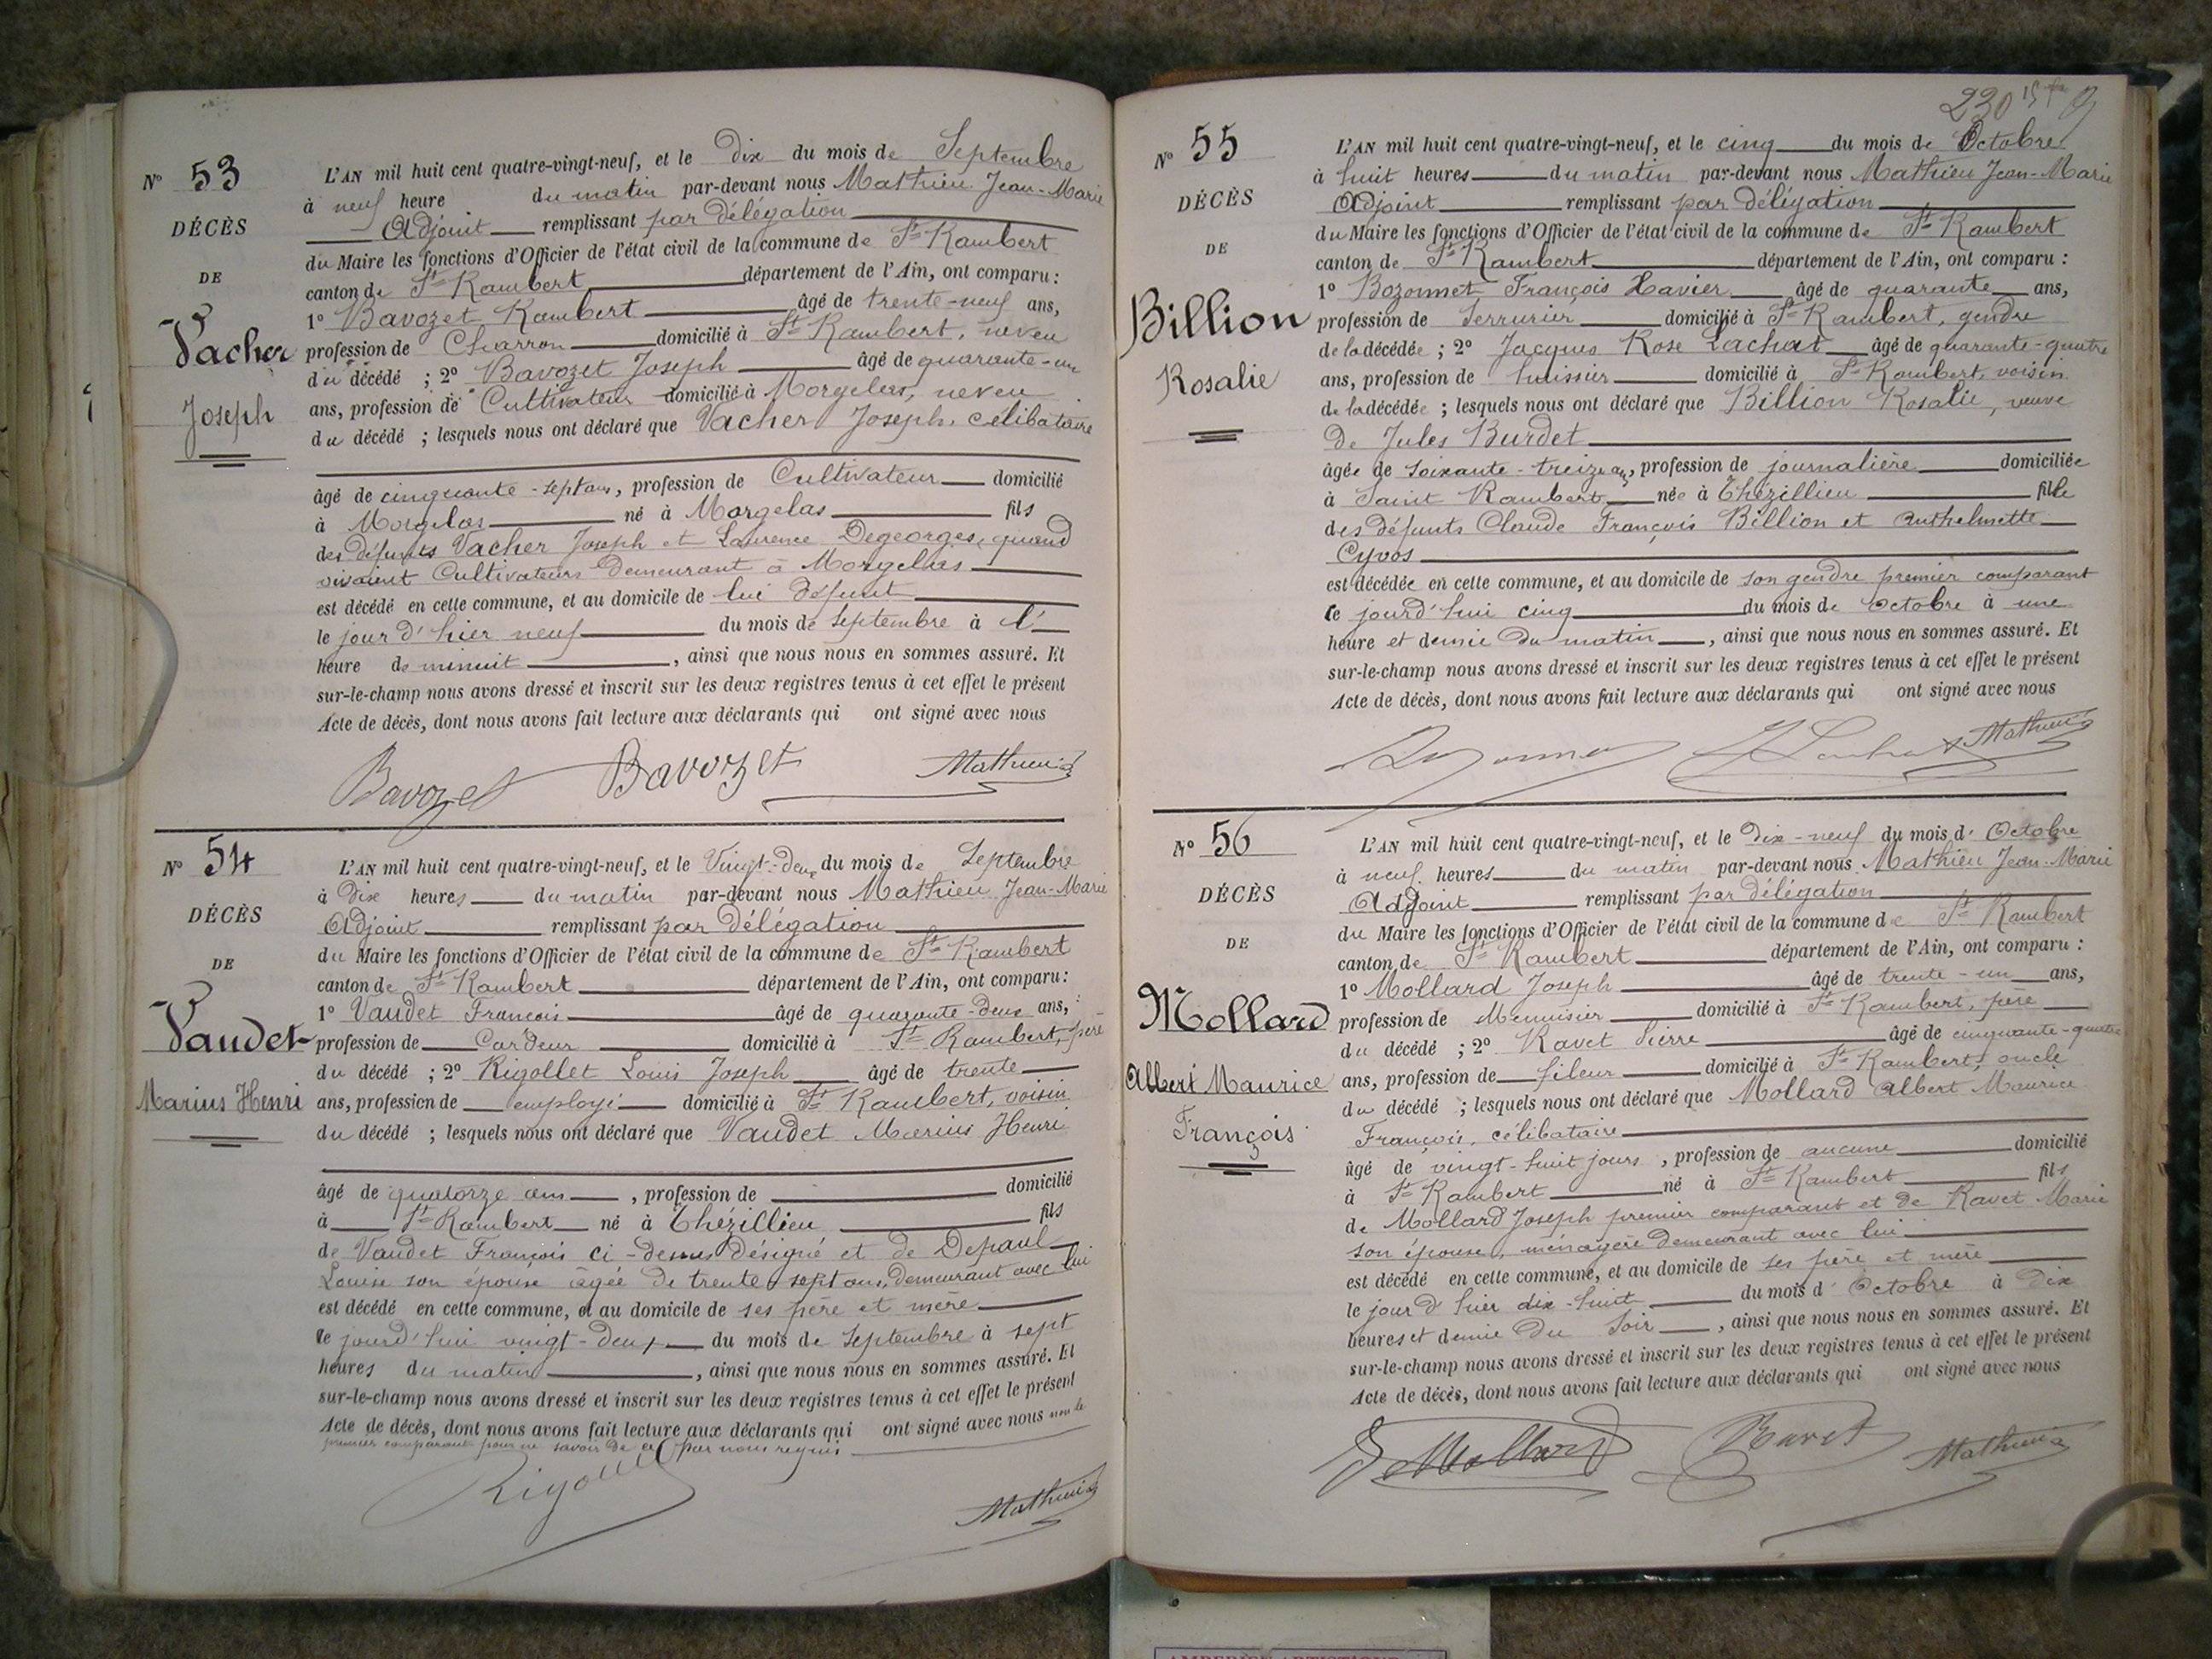 N° 53
DÉCÈS
DE
Vacher
Joseph
L'AN mil huit cent quatre-vingt-neuf, et le dix du mois de Septembre
à neuf heure du matin par-devant nous Mathieu Jean-Marie
Adjoint remplissant par délégation
du Maire les fonctions d'Officier de l'état civil de la commune de St Rambert
canton de St Rambert département de l'Ain, ont comparu :
1° Bavozet Rambert âgé de trente-neuf ans,
profession de Charron domicilié à St Rambert, neveu
du décédé ; 2° Bavozet Joseph âgé de quarante-un
ans, profession de Cultivateur domicilié à Morgelas, neveu
du décédé ; lesquels nous ont déclaré que Vacher Joseph, célibataire
âgé de cinquante-sept ans, profession de Cultivateur domicilié
à Morgelas né à Morgelas fils
des défunts Vacher Joseph et Laurence Degeorges, quand
vivaient Cultivateurs demeurant à Morgelas
est décédé en cette commune, et au domicile de lui défunt
le jour d'hier neuf du mois de septembre à l'
heure de minuit, ainsi que nous nous en sommes assuré. Et
sur-le-champ nous avons dressé et inscrit sur les deux registres tenus à cet effet le présent
Acte de décès, dont nous avons fait lecture aux déclarants qui ont signé avec nous
Bavozet Bavozet Mathieu
N° 54
DÉCÈS
DE
Vaudet
Marius Henri
L'AN mil huit cent quatre-vingt-neuf, et le Vingt-deux du mois de Septembre
à Dix heures du matin par-devant nous Mathieu Jean-Marie
Adjoint remplissant par délégation
du Maire les fonctions d'Officier de l'état civil de la commune de St Rambert
canton de St Rambert département de l'Ain, ont comparu :
1° Vaudet François âgé de quarante-deux ans,
profession de Cardeur domicilié à St Rambert, père
du décédé ; 2° Rigollet Louis Joseph âgé de trente
ans, profession de employé domicilié à St Rambert, voisin
du décédé ; lesquels nous ont déclaré que Vaudet Marius Henri
âgé de quatorze ans, profession de domicilié
à St Rambert né à Thézillieu fils
de Vaudet François ci-dessus désigné et de Depaul
Louise son épouse âgée de trente-sept ans, demeurant avec lui
est décédé en cette commune, et au domicile de ses père et mère
le jourd'hui vingt-deux du mois de septembre à sept
heures du matin, ainsi que nous nous en sommes assuré. Et
sur-le-champ nous avons dressé et inscrit sur les deux registres tenus à cet effet le présent
Acte de décès, dont nous avons fait lecture aux déclarants qui ont signé avec nous non le
premier comparant pour ne savoir de ce par nous requis
Rigollet
Mathieu
230
N° 55
DÉCÈS
DE
Billion
Rosalie
L'AN mil huit cent quatre-vingt-neuf, et le cinq du mois de Octobre
à huit heures du matin par-devant nous Mathieu Jean-Marie
Adjoint remplissant par délégation
du Maire les fonctions d'Officier de l'état civil de la commune de St Rambert
canton de St Rambert département de l'Ain, ont comparu :
1° Bozonnet François Xavier âgé de quarante ans,
profession de Serrurier domicilié à St Rambert, gendre
de la décédée ; 2° Jacques Rose Lachat âgé de quarante-quatre
ans, profession de huissier domicilié à St Rambert, voisin
de la décédée ; lesquels nous ont déclaré que Billion Rosalie, veuve
de Jules Burdet
âgée de soixante-treize ans, profession de journalière domiciliée
à Saint Rambert née à Thézillieu fille
des défunts Claude François Billion et Anthelmette
Cyvos
est décédée en cette commune, et au domicile de son gendre premier comparant
le jourd'hui cinq du mois de Octobre à une
heure et demie du matin, ainsi que nous nous en sommes assuré. Et
sur-le-champ nous avons dressé et inscrit sur les deux registres tenus à cet effet le présent
Acte de décès, dont nous avons fait lecture aux déclarants qui ont signé avec nous
Mathieu
N° 56
DÉCÈS
DE
Mollard
Albert Maurice
François
L'AN mil huit cent quatre-vingt-neuf, et le dix-neuf du mois d' Octobre
à neuf heures du matin par-devant nous Mathieu Jean-Marie
Adjoint remplissant par délégation
du Maire les fonctions d'Officier de l'état civil de la commune de St Rambert
canton de St Rambert département de l'Ain, ont comparu :
1° Mollard Joseph âgé de trente-un ans,
profession de Menuisier domicilié à St Rambert, père
du décédé ; 2° Ravet Pierre âgé de cinquante-quatre
ans, profession de fileur domicilié à St Rambert, oncle
du décédé ; lesquels nous ont déclaré que Mollard Albert Maurice
François, célibataire
âgé de vingt-huit jours, profession de aucune domicilié
à St Rambert né à St Rambert fils
de Mollard Joseph premier comparant et de Ravet Marie
son épouse, ménagère demeurant avec lui
est décédé en cette commune, et au domicile de ses père et mère
le jour d'hier dix-huit du mois d' Octobre à dix
heures et demie du soir, ainsi que nous nous en sommes assuré. Et
sur-le-champ nous avons dressé et inscrit sur les deux registres tenus à cet effet le présent
Acte de décès, dont nous avons fait lecture aux déclarants qui ont signé avec nous
Mollard Ravet Mathieu